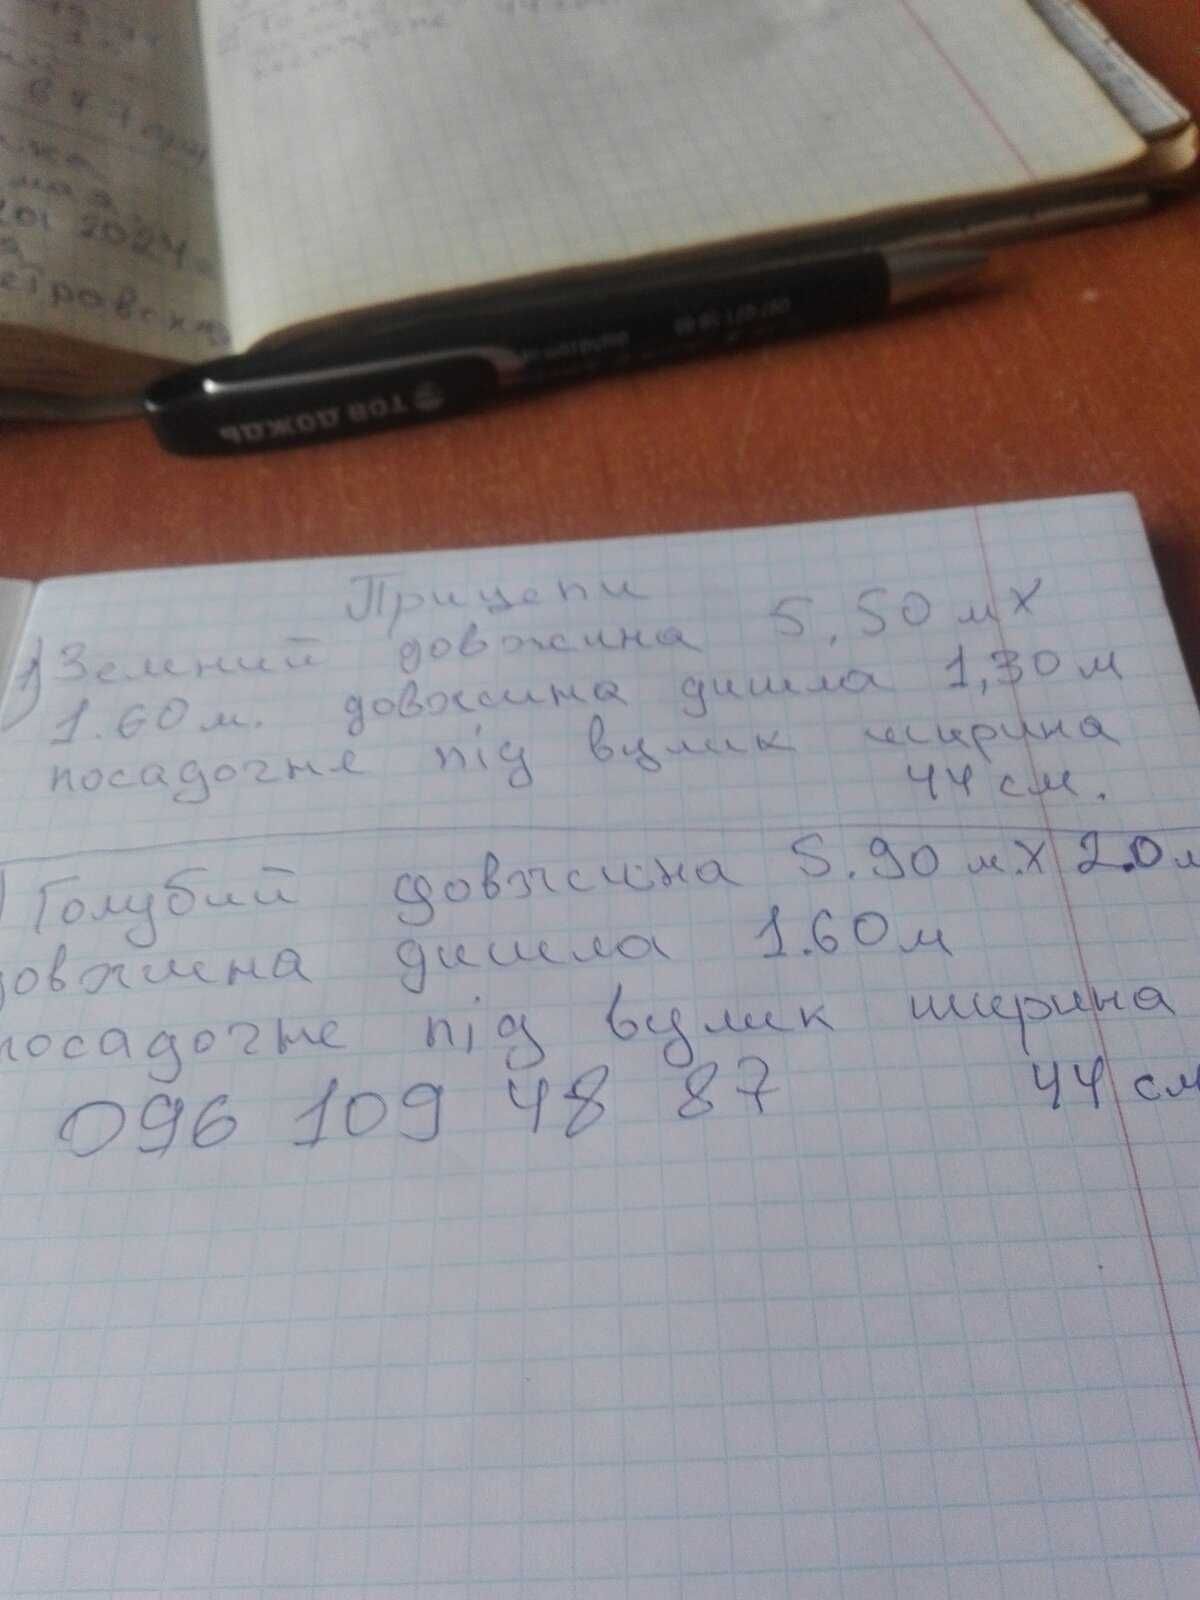 44 см
2024
ТОВ ДОЖДЬ
Прицепи
1) Зелений довжина 5,50 м х
1.60 м. довжина дишла 1,30 м
посадочне під вулик ширина
44 см.
) Голубий довжина 5.90 м. х 2.0 м
довжина дишла 1.60 м
посадочне під вулик ширина
44 см
096 109 48 87